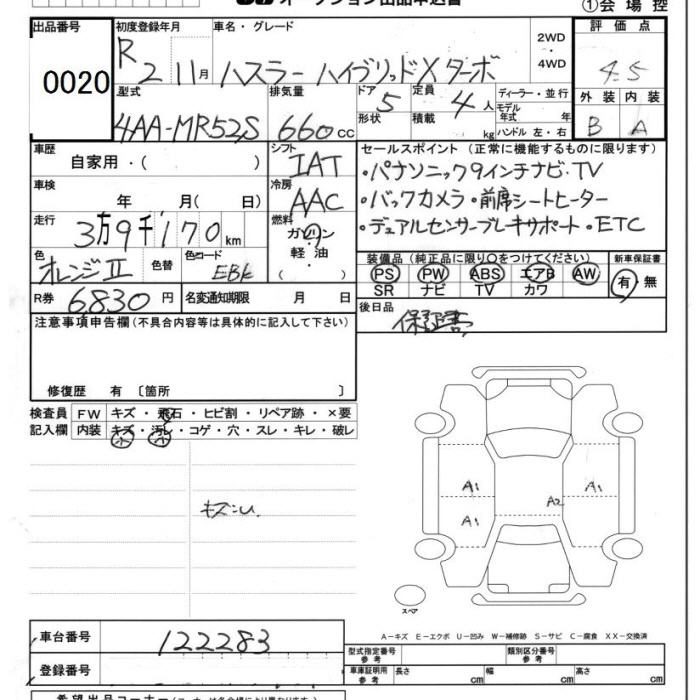 オークション出品申込書
①会場控
出品番号 0020
初度登録年月 R2 11月
車名・グレード ハスラー ハイブリッドXターボ
2WD・4WD
評価点 4.5
外装 B 内装 A
型式 4AA-MR52S
排気量 660cc
ドア形状 5
定員 4人
積載 kg
ディーラー・並行
モデル年式 年
ハンドル 左・右
車歴 自家用・( )
シフト IAT
セールスポイント (正常に機能するものに限ります)
・パナソニック9インチナビ・TV
・バックカメラ・前席シートヒーター
・デュアルセンサーブレーキサポート・ETC
車検 年 月( 日)
冷房 AAC
走行 3万9千170km
燃料 ガソリン・軽油・
色 オレンジII 色替
色コード EBK
装備品(純正品に限り○をつけてください)
新車保証書 有・無
PS PW ABS エアB AW
SR ナビ TV カワ
R券 6,830円
名変通知期限 月 日
後日品 保証書
注意事項申告欄(不具合内容等は具体的に記入して下さい)
修復歴 有〔箇所 〕
検査員記入欄
FW キズ・飛石・ヒビ割・リペア跡・×要
内装 キズ・汚レ・コゲ・穴・スレ・キレ・破レ
小 小
キズ小
A1
A1
A2
A1
スペア
A-キズ E-エクボ U-凹み W-補修跡 S-サビ C-腐食 XX-交換済
車台番号 122283
登録番号
型式指定番号 参考
類別区分番号 参考
車庫証明用 参考 長さ cm 幅 cm 高さ cm
希望出品コーナー